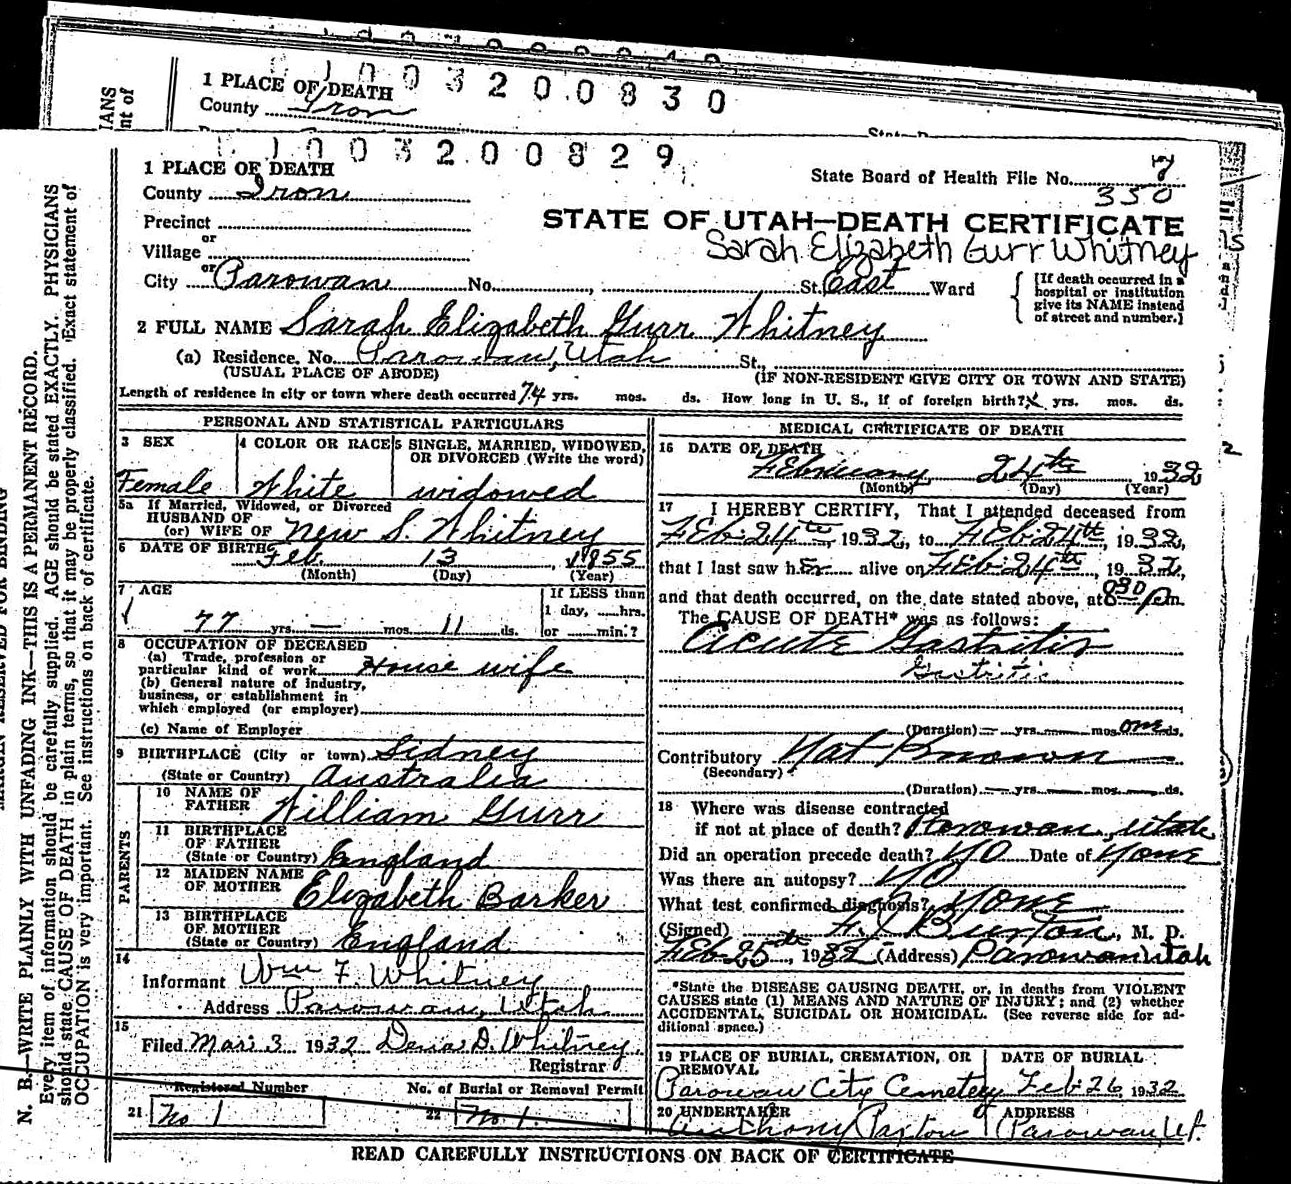 1 PLACE OF DEATH
County Iron
1 0 0 3 2 0 0 8 3 0
1 0 0 3 2 0 0 8 2 9
1 PLACE OF DEATH
County Iron
Precinct
or
Village
or
City Parowan No. St. East Ward
State Board of Health File No. 7
350
STATE OF UTAH—DEATH CERTIFICATE
Sarah Elizabeth Gurr Whitney
[If death occurred in a hospital or institution give its NAME instead of street and number.]
2 FULL NAME Sarah Elizabeth Gurr Whitney
(a) Residence. No. Parowan, Utah St.
(USUAL PLACE OF ABODE) (IF NON-RESIDENT GIVE CITY OR TOWN AND STATE)
Length of residence in city or town where death occurred 74 yrs. mos. ds. How long in U. S., if of foreign birth? yrs. mos. ds.
PERSONAL AND STATISTICAL PARTICULARS
3 SEX 4 COLOR OR RACE 5 SINGLE, MARRIED, WIDOWED,
OR DIVORCED (Write the word)
Female White widowed
5a If Married, Widowed, or Divorced
HUSBAND OF
(or) WIFE OF New S. Whitney
6 DATE OF BIRTH Feb. 13, 1855
(Month) (Day) (Year)
7 AGE If LESS than
77 yrs. — mos. 11 ds. 1 day, hrs.
or min.?
8 OCCUPATION OF DECEASED
(a) Trade, profession or
particular kind of work House wife
(b) General nature of industry,
business, or establishment in
which employed (or employer)
(c) Name of Employer
9 BIRTHPLACE (City or town) Sidney
(State or Country) Australia
PARENTS
10 NAME OF
FATHER William Gurr
11 BIRTHPLACE
OF FATHER
(State or Country) England
12 MAIDEN NAME
OF MOTHER Elizabeth Barker
13 BIRTHPLACE
OF MOTHER
(State or Country) England
14
Informant Wm F. Whitney
Address Parowan, Utah
15
Filed Mar 3 1932 D. Whitney
Registrar
Registered Number No. of Burial or Removal Permit
21 No 1 22 No 1.
MEDICAL CERTIFICATE OF DEATH
16 DATE OF DEATH
February 24th 1932
(Month) (Day) (Year)
17 I HEREBY CERTIFY, That I attended deceased from
Feb. 24th, 1932, to Feb 24th, 1932,
that I last saw her alive on Feb 24th, 1932,
and that death occurred, on the date stated above, at 830 Pm.
The CAUSE OF DEATH* was as follows:
Acute Gastritis
Gastritis
(Duration) — yrs. — mos. one ds.
Contributory Not Known
(Secondary)
(Duration) — yrs. — mos. — ds.
18 Where was disease contracted
if not at place of death? Parowan, Utah
Did an operation precede death? No Date of None
Was there an autopsy? No
What test confirmed diagnosis? None
(Signed) Burton, M. D.
Feb 25th, 1932 (Address) Parowan Utah
*State the DISEASE CAUSING DEATH, or, in deaths from VIOLENT
CAUSES state (1) MEANS AND NATURE OF INJURY; and (2) whether
ACCIDENTAL, SUICIDAL OR HOMICIDAL. (See reverse side for ad-
ditional space.)
19 PLACE OF BURIAL, CREMATION, OR DATE OF BURIAL
REMOVAL
Parowan City Cemetery Feb 26, 1932
20 UNDERTAKER ADDRESS
Anthony Paxton Parowan, Ut.
READ CAREFULLY INSTRUCTIONS ON BACK OF CERTIFICATE
N. B.—WRITE PLAINLY WITH UNFADING INK—THIS IS A PERMANENT RECORD.
Every item of information should be carefully supplied. AGE should be stated EXACTLY. PHYSICIANS
should state CAUSE OF DEATH in plain terms, so that it may be properly classified. Exact statement of
OCCUPATION is very important. See instructions on back of certificate.